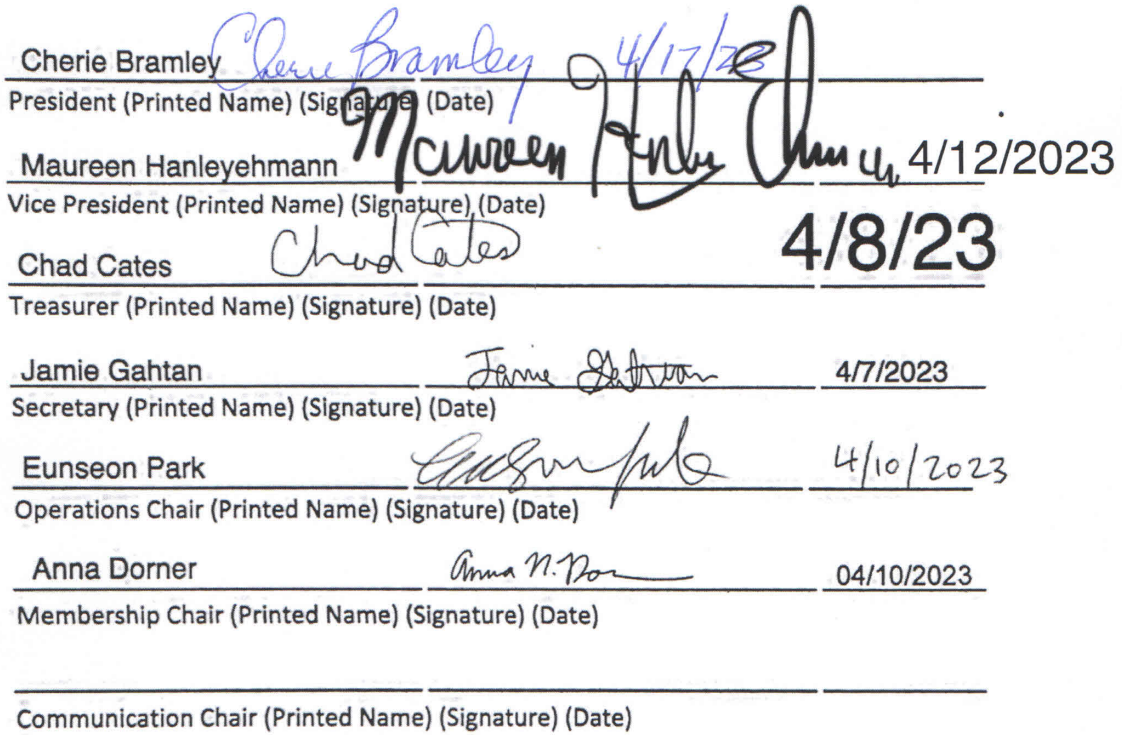 Cherie Bramley Cherie Bramley 4/17/23
President (Printed Name) (Signature) (Date)
Maureen Hanleyehmann Maureen 4/12/2023
Vice President (Printed Name) (Signature) (Date)
Chad Cates Chad Cates 4/8/23
Treasurer (Printed Name) (Signature) (Date)
Jamie Gahtan Jamie Gahtan 4/7/2023
Secretary (Printed Name) (Signature) (Date)
Eunseon Park 4/10/2023
Operations Chair (Printed Name) (Signature) (Date)
Anna Dorner Anna N. 04/10/2023
Membership Chair (Printed Name) (Signature) (Date)
Communication Chair (Printed Name) (Signature) (Date)